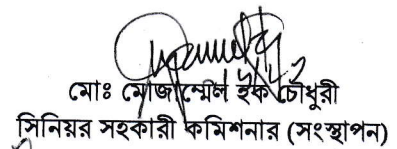 মোঃ মোজাম্মেল হক চৌধুরী
সিনিয়র সহকারী কমিশনার (সংস্থাপন)